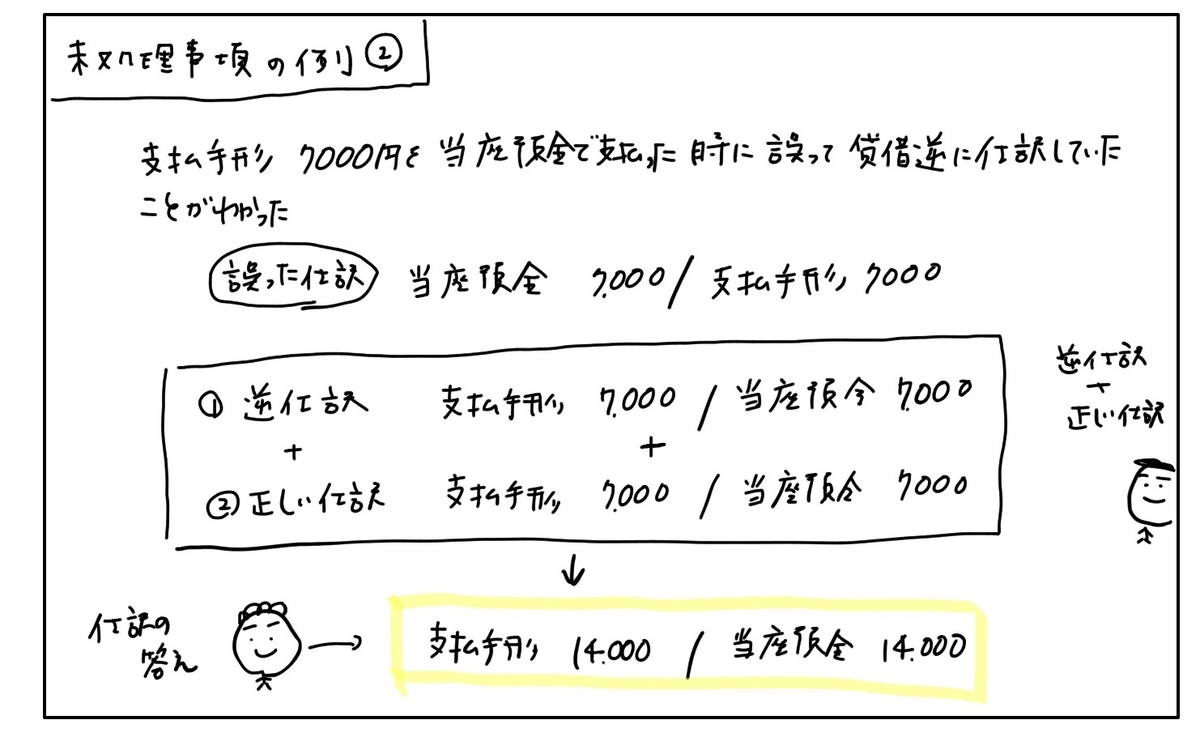 未処理事項の例②
支払手形 7000円を当座預金で支払った時に誤って貸借逆に仕訳していた
ことがわかった
誤った仕訳 当座預金 7.000 / 支払手形 7000
① 逆仕訳 支払手形 7.000 / 当座預金 7.000
+ +
② 正しい仕訳 支払手形 7.000 / 当座預金 7000
逆仕訳
+
正しい仕訳
↓
仕訳の
答え
→ 支払手形 14.000 / 当座預金 14.000